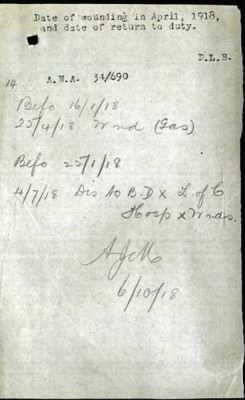 Date of wounding in April, 1918,
and date of return to duty.
D.L.B.
14 A.W.A. 34/690
Befo 16/1/18
25/4/18 Wnd (Gas)
Befo 25/1/18
4/7/18 Dis to B.D x L. of C
Hosp x Wnds.
6/10/18